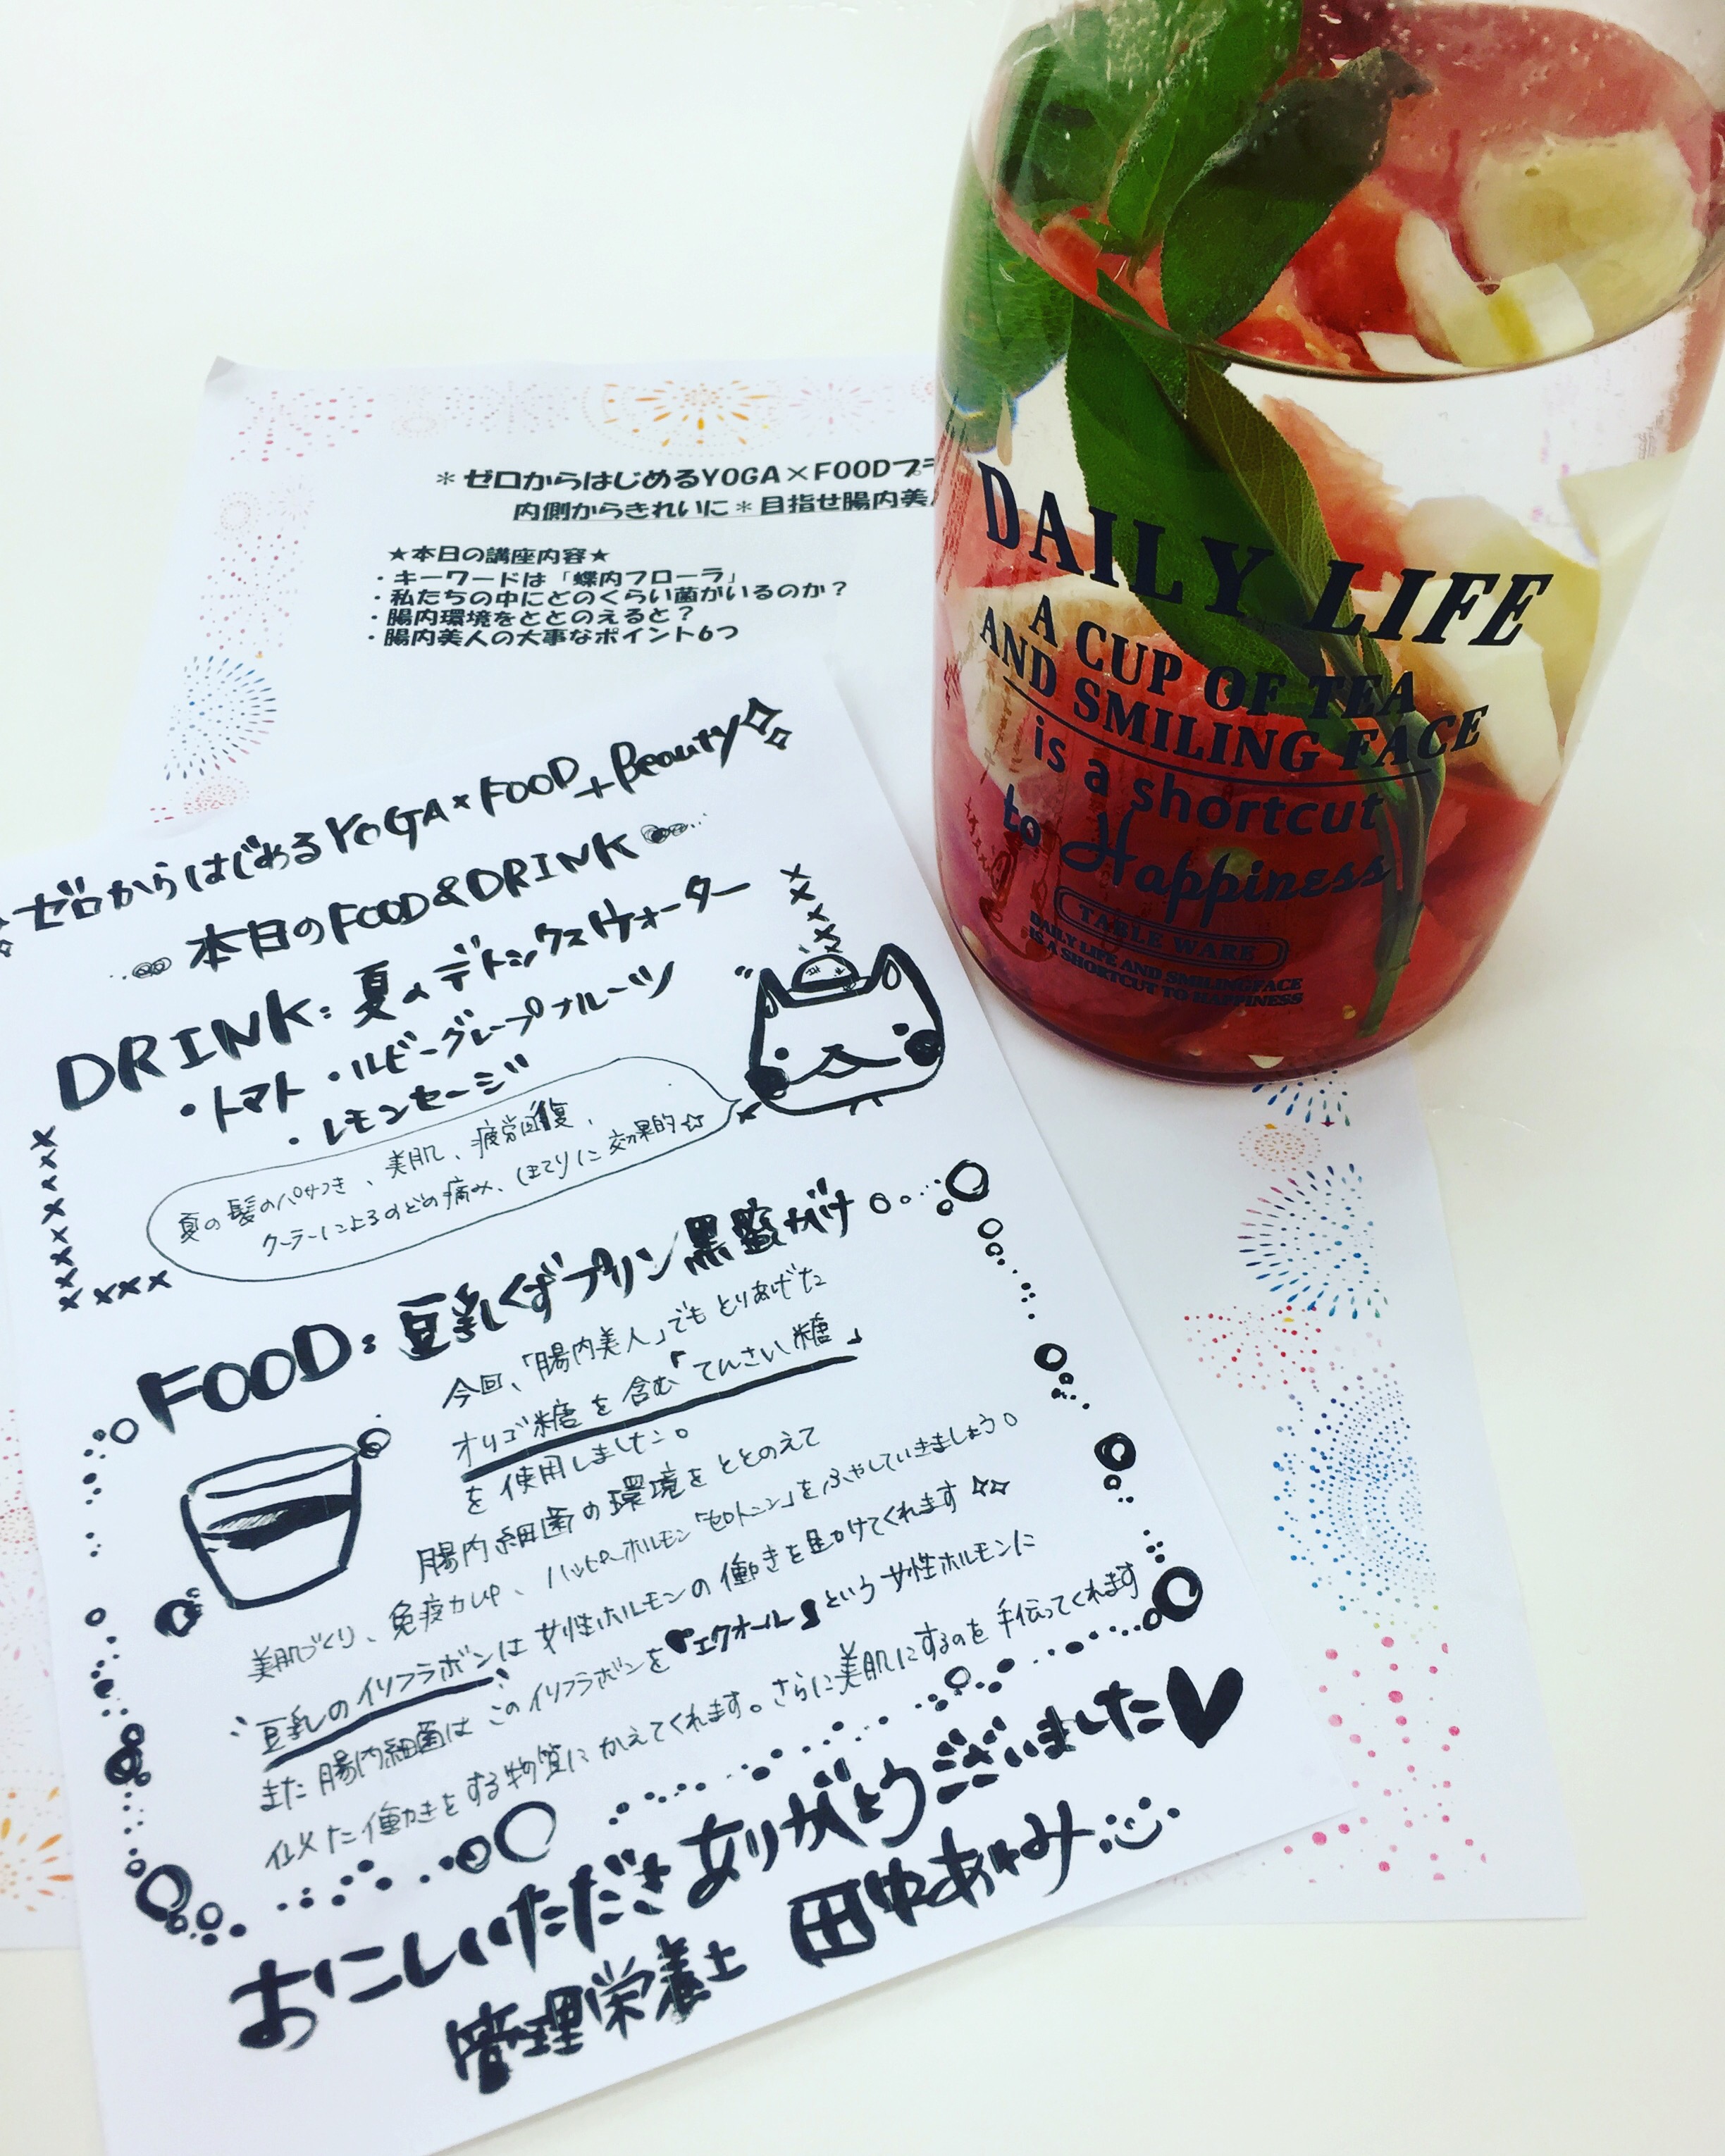 *ゼロからはじめるYOGA×FOODプラ
内側からきれいに*目指せ腸内美人
★本日の講座内容★
・キーワードは「蝶内フローラ」
・私たちの中にどのくらい菌がいるのか?
・腸内環境をととのえると?
・腸内美人の大事なポイント6つ
ゼロからはじめるYOGA×FOOD+Beauty
本日のFOOD&DRINK
DRINK:夏のデトックスウォーター
・トマト・ルビーグレープフルーツ
・レモンセージ
夏の髪のパサつき、美肌、疲労回復、
クーラーによるのどの痛み、ほてりに効果的☆
FOOD:豆乳くずプリン黒蜜がけ
今回、「腸内美人」でもとりあげた
オリゴ糖を含む「てんさい糖」
を使用しました。
腸内細菌の環境をととのえて
美肌づくり、免疫力UP、ハッピーホルモン「セロトニン」をふやしていきましょう。
豆乳のイソフラボンは女性ホルモンの働きを助けてくれます☆☆
また腸内細菌はこのイソフラボンを「エクオール」という女性ホルモンに
似た働きをする物質にかえてくれます。さらに美肌にするのを手伝ってくれます
おこしいただきありがとうございました♥
管理栄養士 田中あゆみ
DAILY LIFE
A CUP OF TEA
AND SMILING FACE
is a shortcut
to Happiness
TABLE WARE
DAILY LIFE AND SMILINGFACE
IS A SHORTCUT TO HAPPINESS